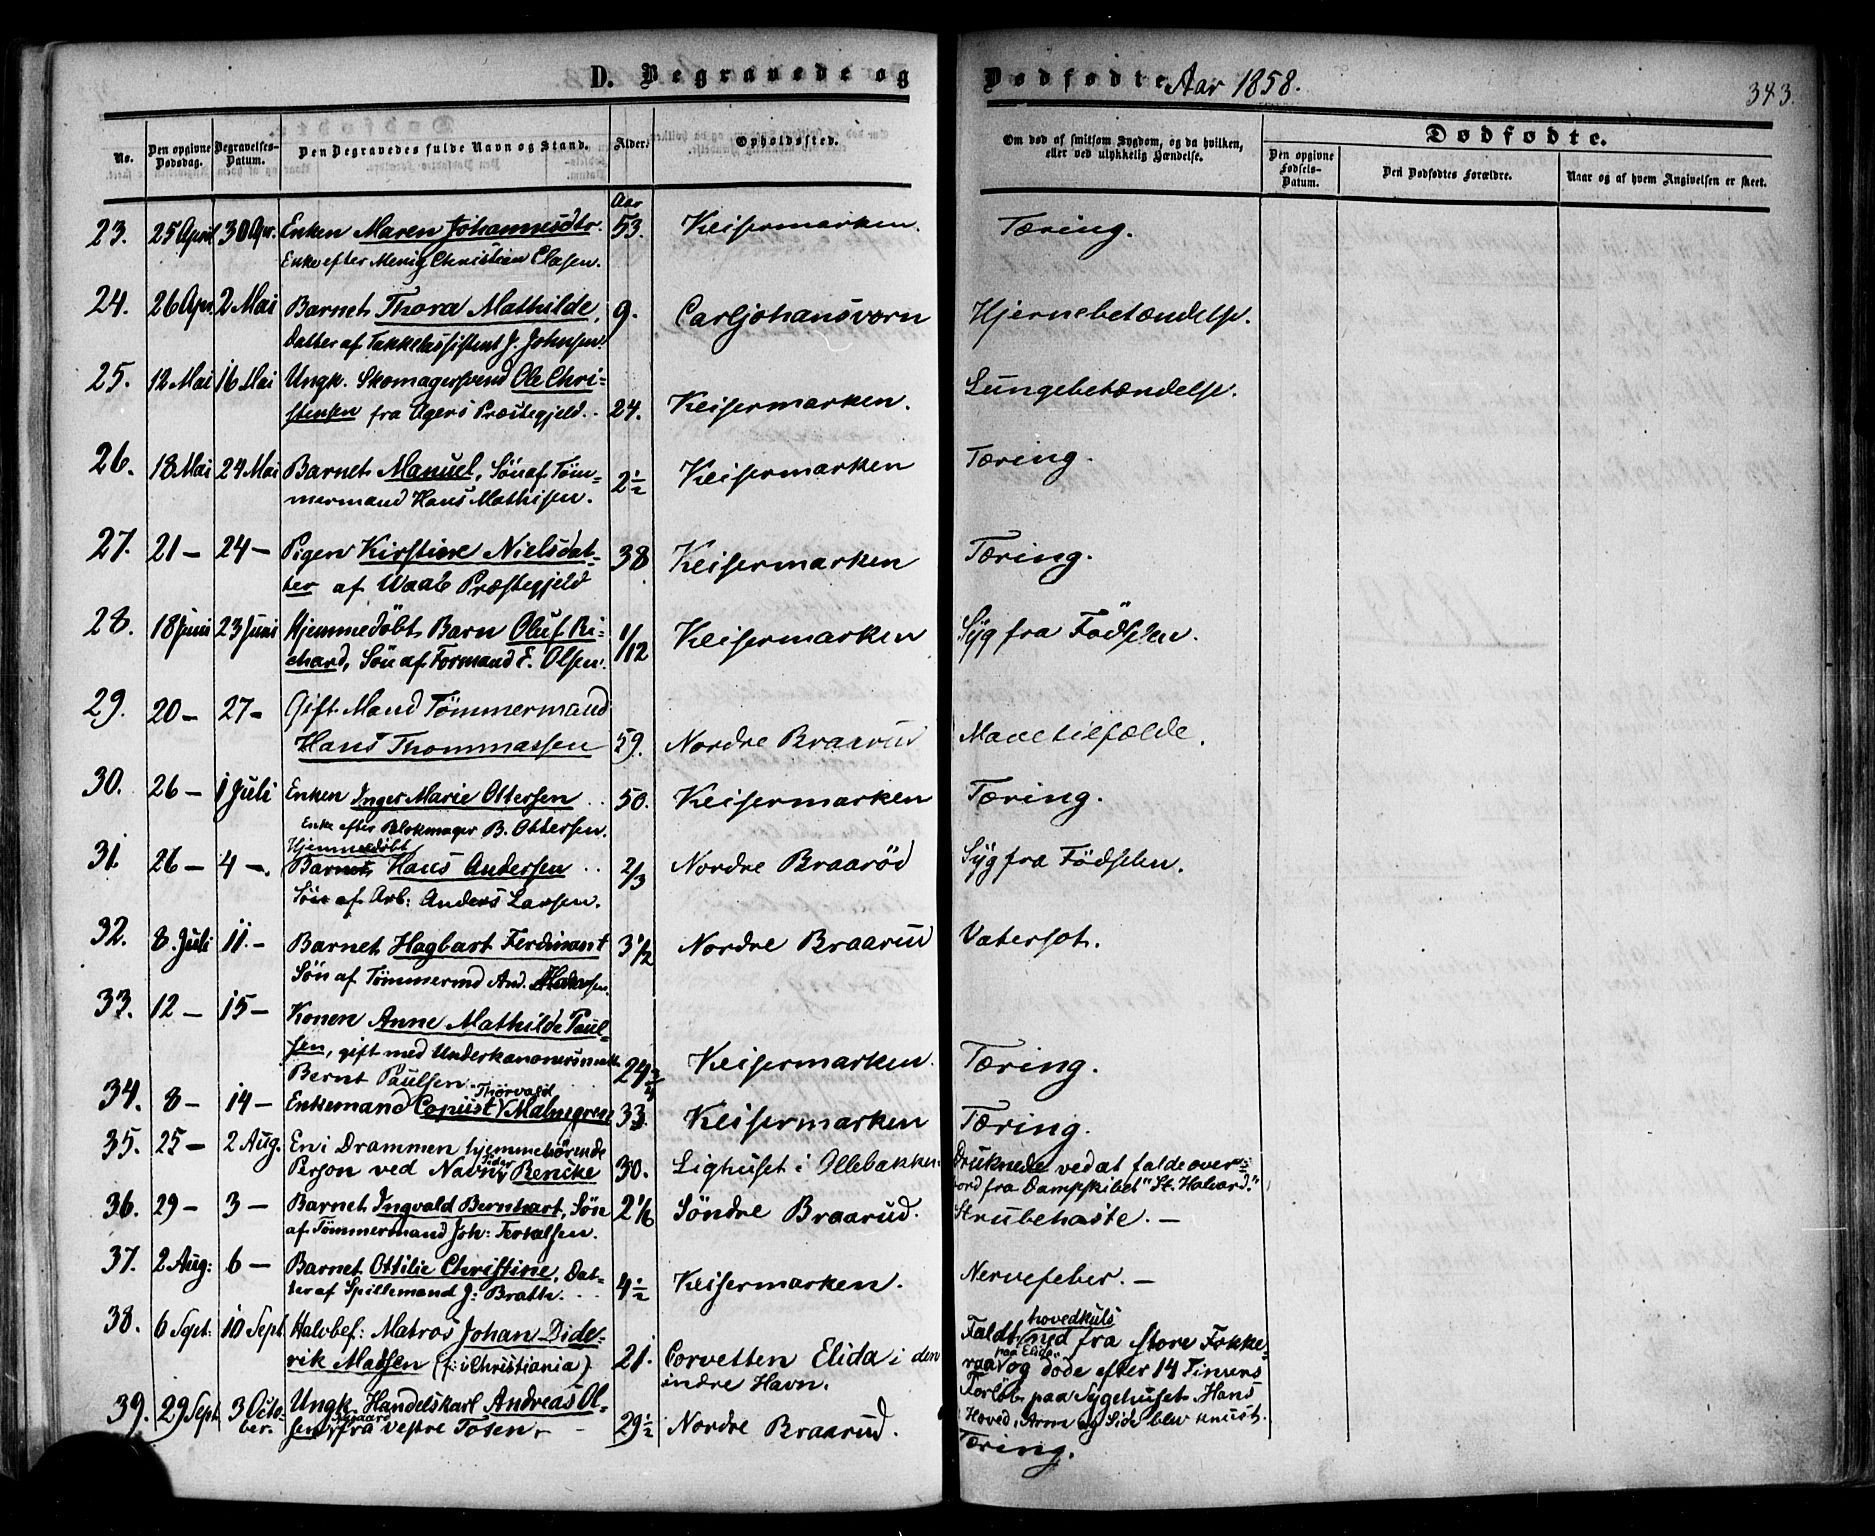 D. Begravede og
Dødfødte Aar 1858.
343.
No.
Den opgivne Dødsdag.
Begravelses-Datum.
Den Begravedes fulde Navn og Stand.
Alder.
Opholdssted.
Om død af smitsom Sygdom, og da hvilken,
eller ved ulykkelig Hændelse.
Dødfødte.
Den opgivne Fødsels-Datum.
Den Dødfødtes Forældre.
Naar og af hvem Angivelsen er skeet.
Aar
23. 25 April 30 Apr. Enken Maren Johannesdtr. 53. Keisermarken. Tæring.
Enke efter Menig Christian Clasen.
24. 26 Apr. 2 Mai Barnet Thora Mathilde, 9. Carljohansværn Hjernebetændelse.
Datter af Takkelassistent J. Johnsen.
25. 12 Mai 16 Mai Ungk. Skomagersvend Ole Chri-
stensen fra Agers Præstegjeld. 24. Keisermarken. Lungebetændelse.
26. 18 Mai 24 Mai Barnet Manuel, Sön af Töm-
mermand Hans Mathisen. 2½ Keisermarken Tæring.
27. 21 — 24 — Pigen Kirstine Nielsdat-
ter af Waale Præstegjeld 38 Keisermarken Tæring.
28. 18 Juni 23 Juni Hjemmedöbt Barn Oluf Ri-
chard, Sön af Formand E. Olsen. 1/12 Keisermarken Syg fra Födselen.
29. 20 — 27 — Gift Mand Tömmermand
Hans Thommassen 59. Nordre Braarud Mavetilfælde.
30. 26 — 1 Juli Enken Inger Marie Ottersen 50. Keisermarken Tæring.
Enke efter Blokmager B. Ottersen.
31. 26 — 4 —. Hjemmedöbt
Barnet Hans Andersen 2/3 Nordre Braaröd Syg fra Födselen.
Sön af Arb: Anders Larsen.
32. 8. Juli 11. — Barnet Hagbart Ferdinant 3½ Nordre Braarud Vatersot.
Sön af Tömmermd And.
33. 12 — 15 — Konen Anne Mathilde Paul-
sen, gift med Underkanoneer
Bernt Paulsen. 24 Keisermarken. Tæring.
34. 8 — 14 — Enkemand Thorvald Malmegreen 33. Keisermarken Tæring.
35. 25 — 2 Aug. En i Drammen hjemmehörende
Person ved Navn Peder Rencke 30. Lighuset i Ollebakken. Druknede ved at falde over-
bord fra Dampskibet "St. Halvard."
36. 29 — 3 — Barnet Ingvald Bernhart, Sön
af Tömmermand Joh: Terkelsen. 2 1/6 Söndre Braarud. Strubehoste. —
37. 2 Aug: 6 — Barnet Ottilie Christine, Dat-
ter af Spillemand J: Brath. 4½ Keisermarken. Nervefeber. —
38. 6 Sept: 10 Sept Halvbef: Matros Johan Dide-
rik Madsen (f: i Christiania) 21. Corvetten Elida i den
indre Havn. Faldt hovedkuls ned fra store Fokke-
raa paa "Elida" og døde efter 14 Timers
Forløb paa Sygehuset. Hans
Hoved, Arm og Side blev knust.
39. 29 Sept 3 Octo-
ber. Ungk. Handelskarl Andreas Ol-
sen fra Vestre Tosen. 29½ Nordre Braarud. Tæring.